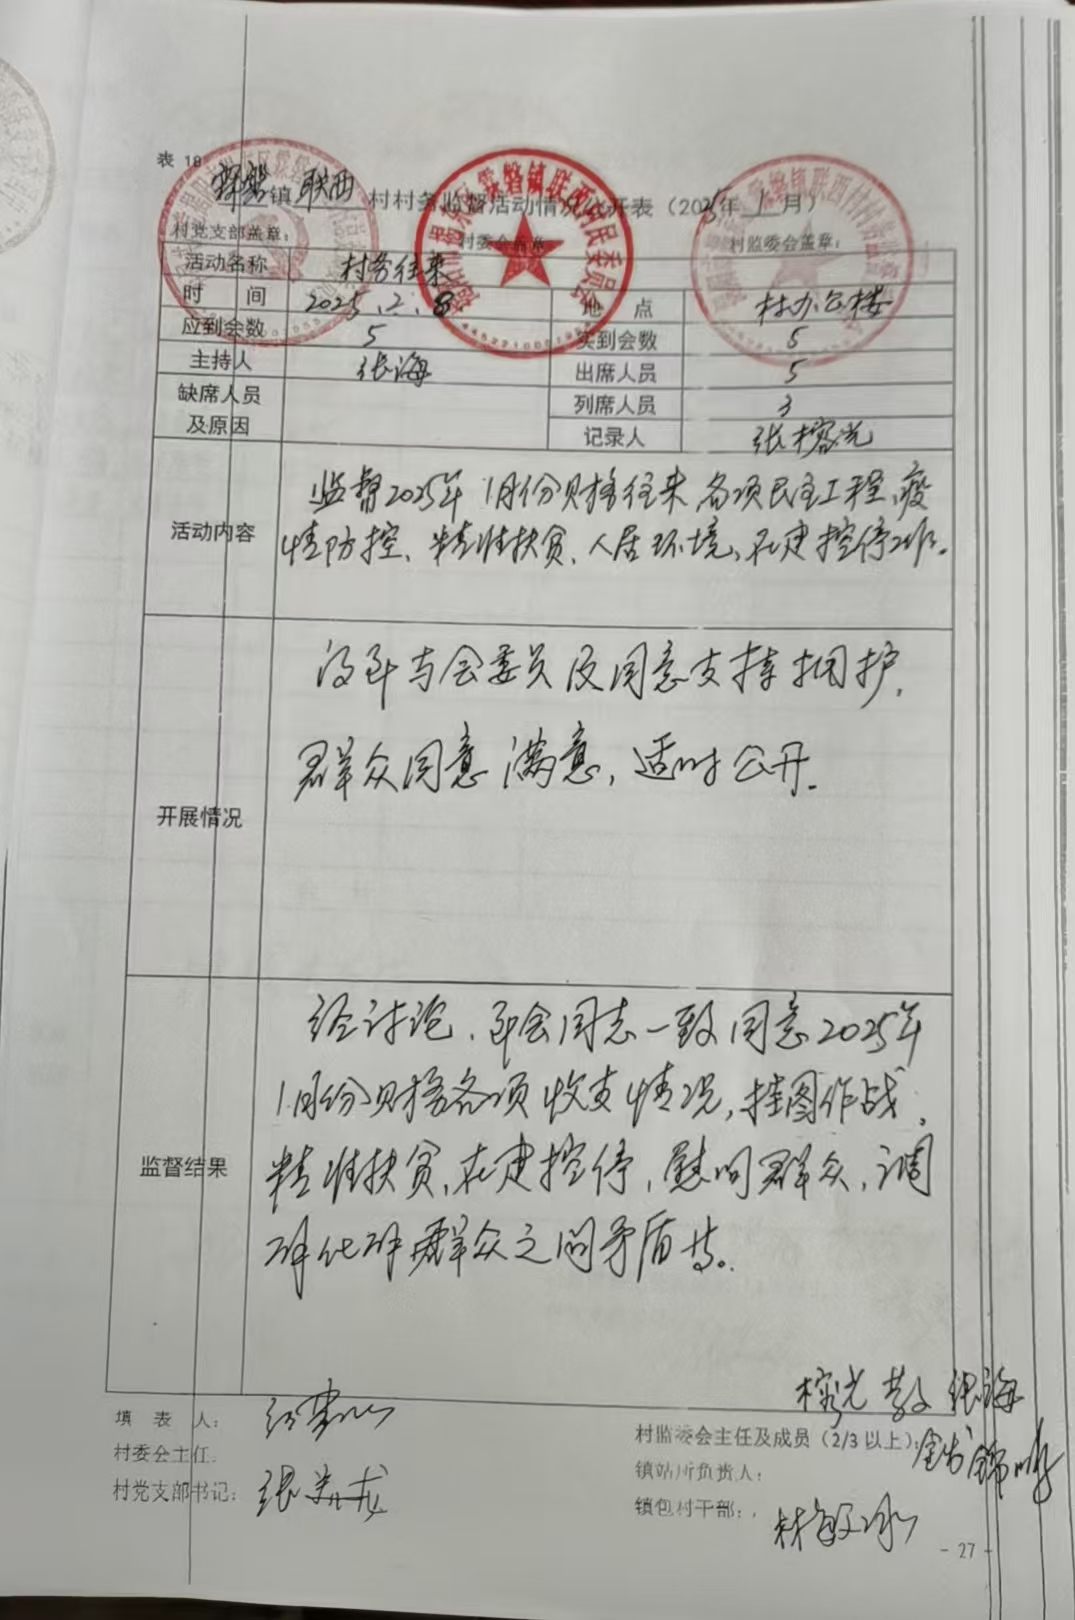 表 18
霖磐镇 联西 村村务监督活动情况公开表（2025年 1 月）
村党支部盖章： 村委会盖章 村监委会盖章：
活动名称 村务往来
时 间 2025.2.8 地 点 村办公楼
应到会数 5 实到会数 5
主持人 张海 出席人员 5
缺席人员及原因 列席人员 3
记录人 张榕光
活动内容
监督2025年1月份财务往来各项民生工程、疫
情防控、精准扶贫、人居环境、在建控停工作。
开展情况
与会委员及同意支持拥护，
群众同意满意，适时公开。
监督结果
经讨论，与会同志一致同意2025年
1月份财务各项收支情况，挂图作战，
精准扶贫，在建控停，慰问群众，调
解化解群众之间矛盾等。
填 表 人：
榕光 张海
村委会主任：
村监委会主任及成员（2/3以上）：
镇站所负责人：
村党支部书记：张
镇包村干部： 林
- 27 -